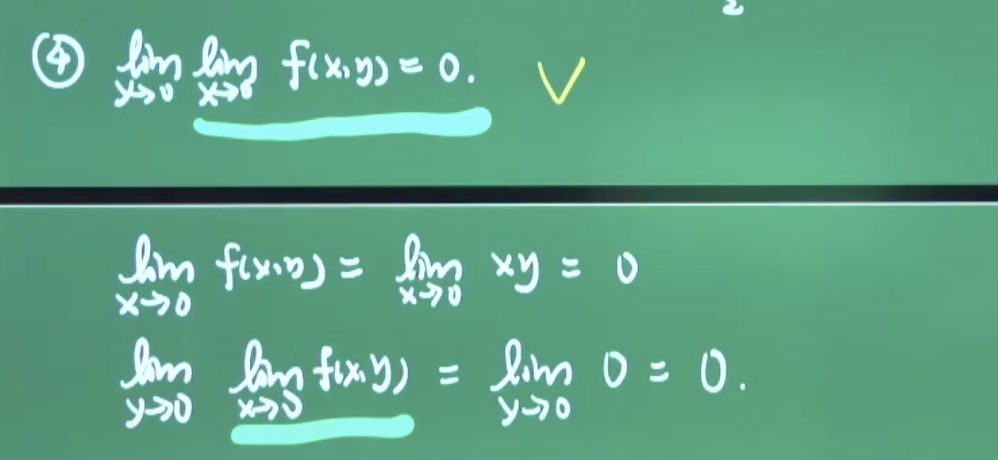 2
④ lim y→0 lim x→0 f(x,y) = 0. √
lim x→0 f(x,y) = lim x→0 xy = 0
lim y→0 lim x→0 f(x,y) = lim y→0 0 = 0.